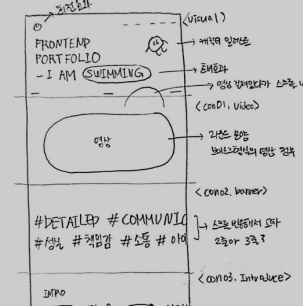 회전효과
<visual>
FRONTEND
PORTFOLIO
- I AM SWIMMING
캐릭터 일러스트
효과
<con01, video>
영상
라운드 모양
영상 첨부
<con02, banner>
#DETAILED #COMMUNIC
#성실 #책임감 #소통 #아이
스크롤 반응해서 교차
2줄 or 3줄?
<con03, Introduce>
INTRO